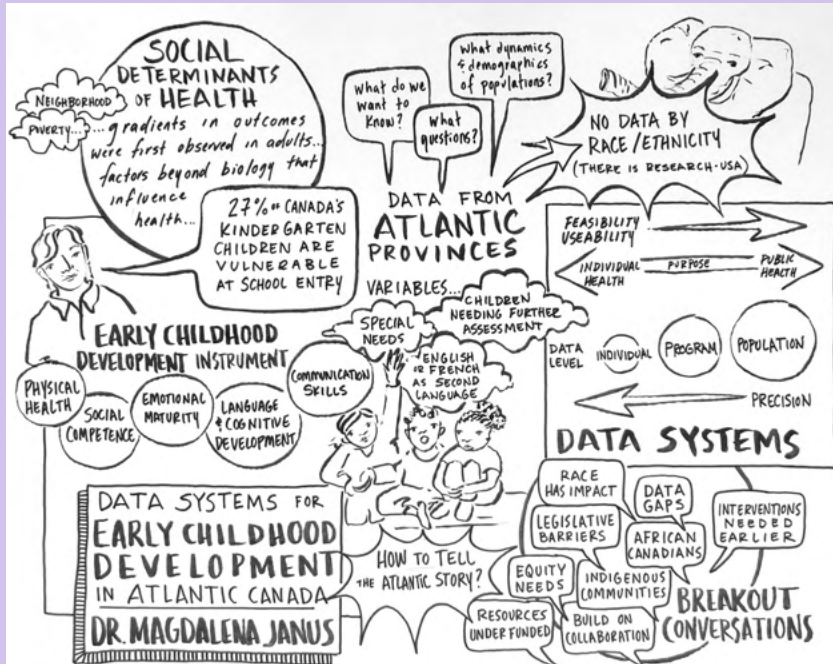 SOCIAL
DETERMINANTS
OF HEALTH
NEIGHBORHOOD
POVERTY...
...gradients in outcomes
were first observed in adults...
factors beyond biology that
influence
health...
27% OF CANADA'S
KINDERGARTEN
CHILDREN ARE
VULNERABLE
AT SCHOOL ENTRY
What do we
want to
Know?
What
questions?
What dynamics
& demographics
of populations?
NO DATA BY
RACE/ETHNICITY
(THERE IS RESEARCH-USA)
DATA FROM
ATLANTIC
PROVINCES
VARIABLES...
SPECIAL
NEEDS
CHILDREN
NEEDING FURTHER
ASSESSMENT
ENGLISH
OR FRENCH
AS SECOND
LANGUAGE
EARLY CHILDHOOD
DEVELOPMENT INSTRUMENT
PHYSICAL
HEALTH
SOCIAL
COMPETENCE
EMOTIONAL
MATURITY
LANGUAGE
& COGNITIVE
DEVELOPMENT
COMMUNICATION
SKILLS
FEASIBILITY
USEABILITY
INDIVIDUAL
HEALTH
PURPOSE
PUBLIC
HEALTH
DATA
LEVEL
INDIVIDUAL
PROGRAM
POPULATION
PRECISION
DATA SYSTEMS
DATA SYSTEMS FOR
EARLY CHILDHOOD
DEVELOPMENT
IN ATLANTIC CANADA
DR. MAGDALENA JANUS
HOW TO TELL
THE ATLANTIC STORY?
RACE
HAS IMPACT
DATA
GAPS
INTERVENTIONS
NEEDED
EARLIER
LEGISLATIVE
BARRIERS
AFRICAN
CANADIANS
EQUITY
NEEDS
INDIGENOUS
COMMUNITIES
RESOURCES
UNDERFUNDED
BUILD ON
COLLABORATION
BREAKOUT
CONVERSATIONS